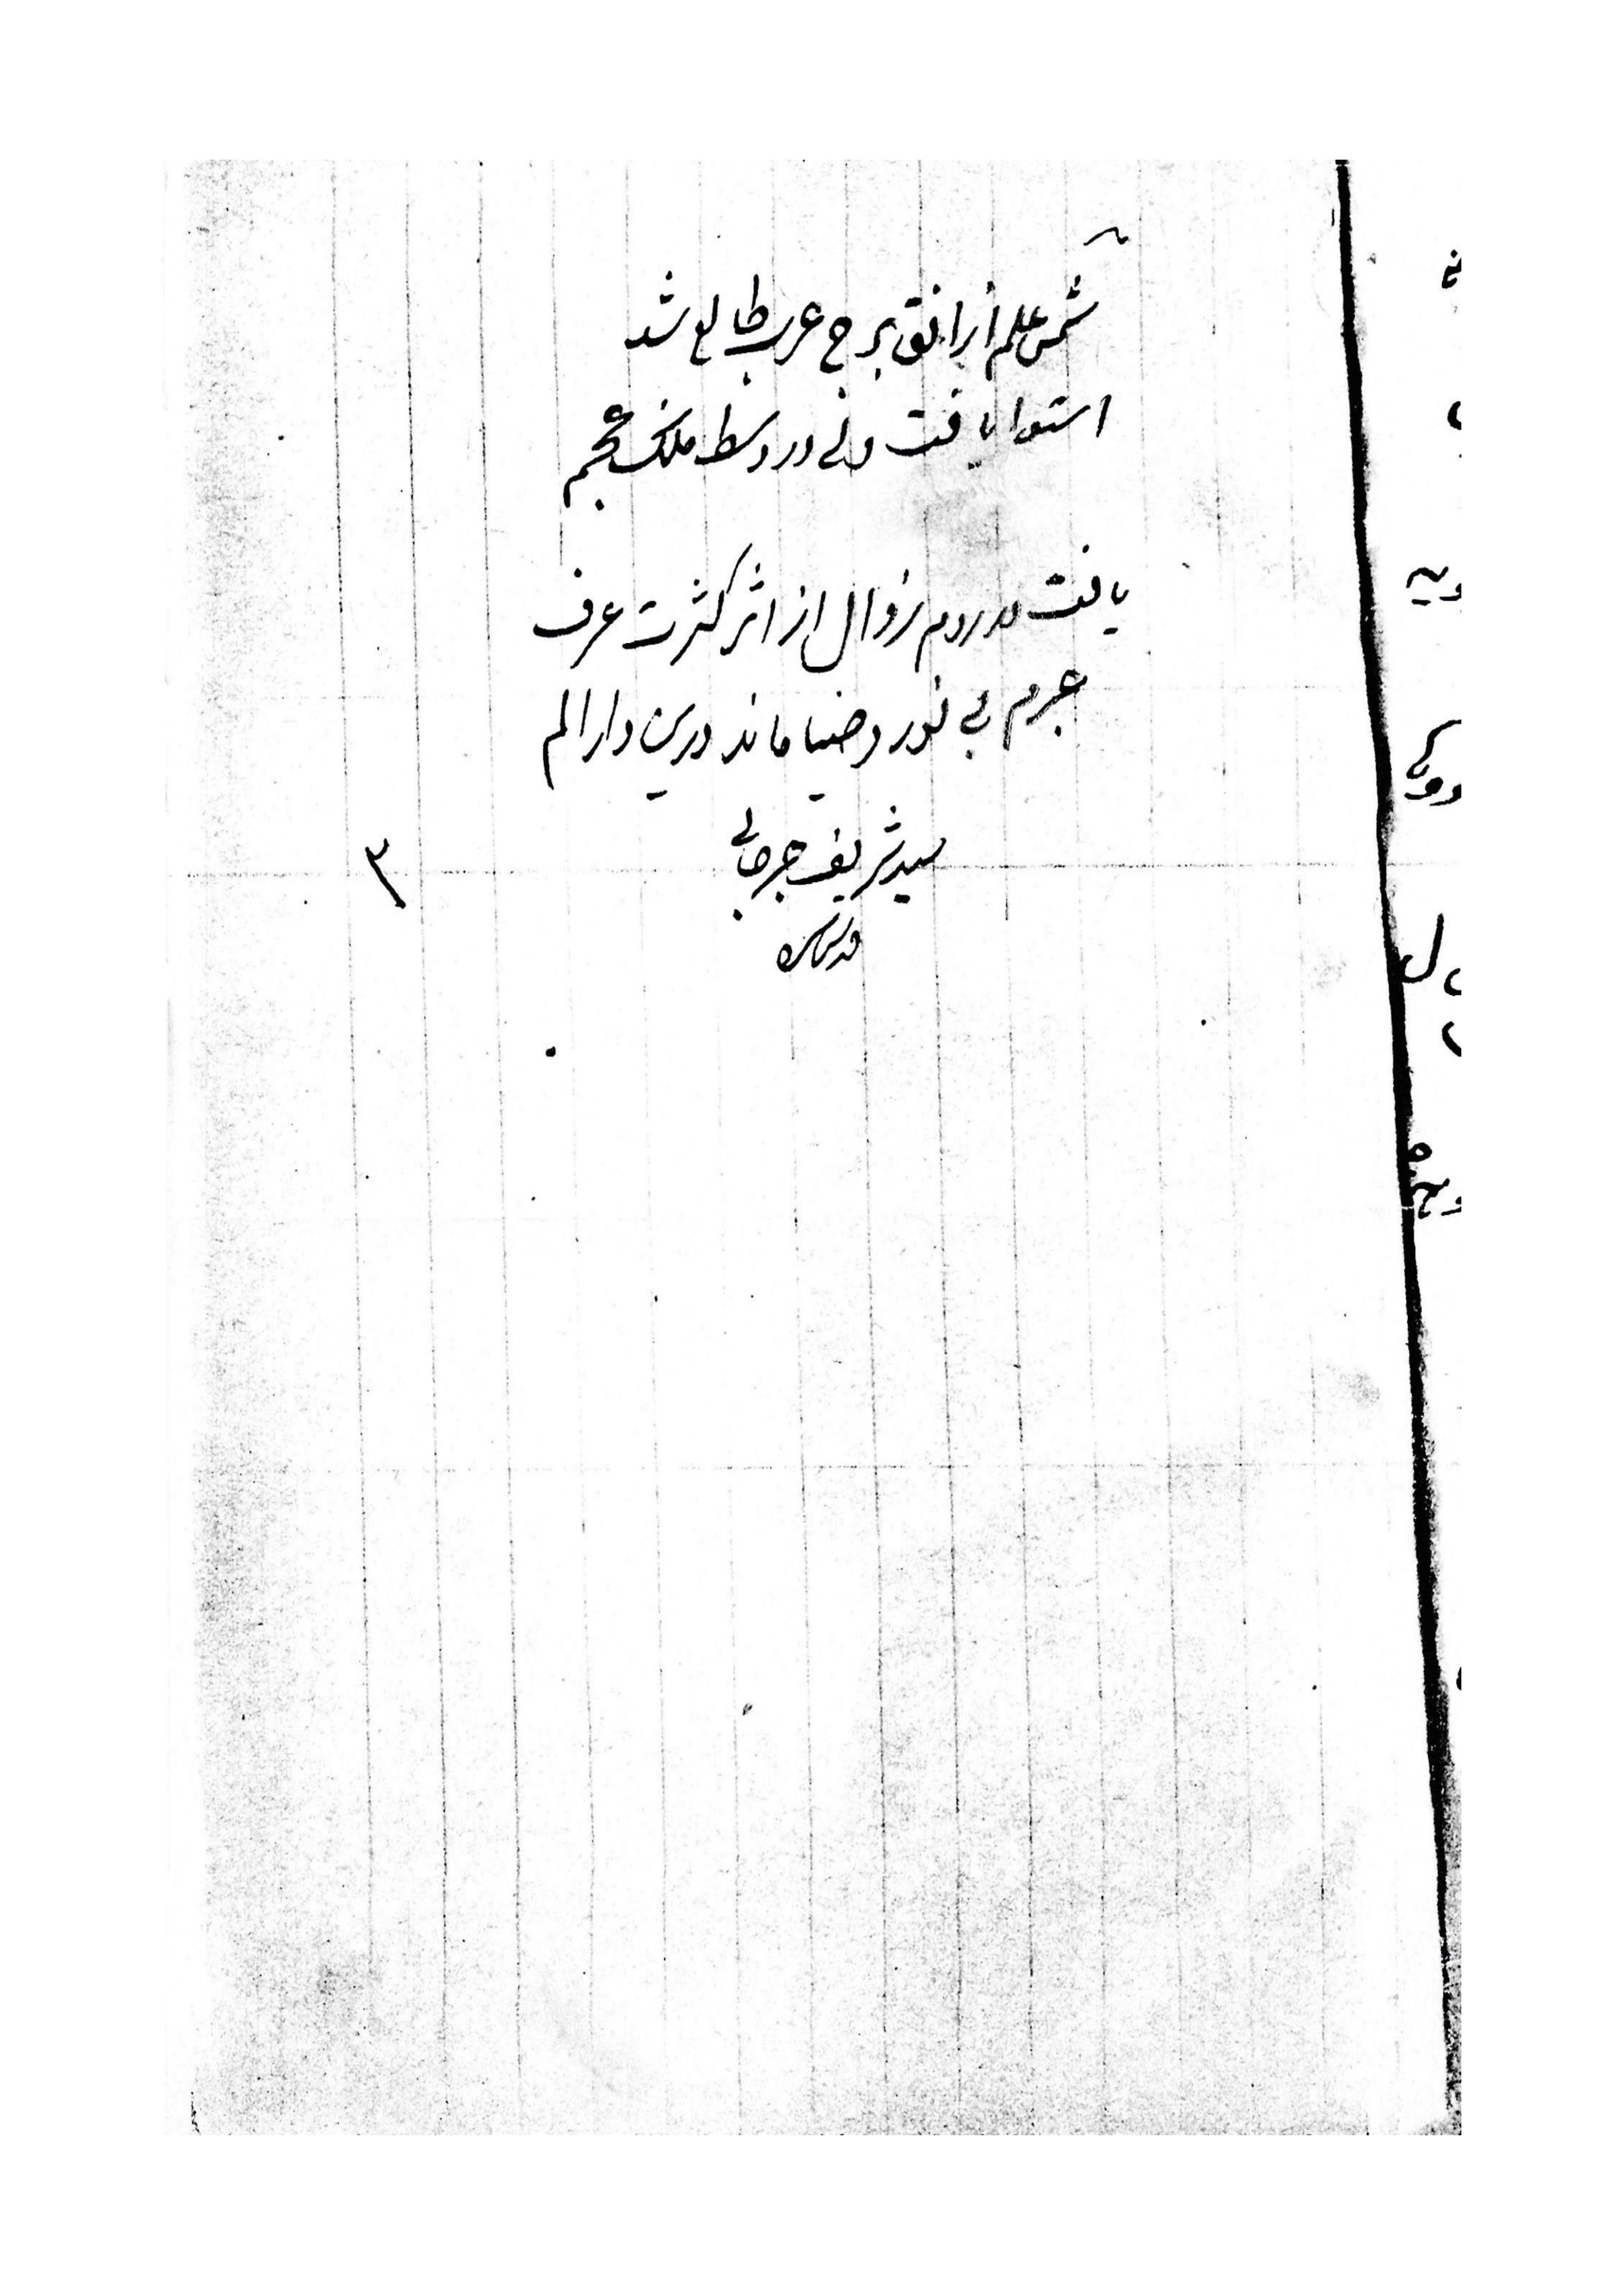 شمس علم از افق برج عرب طالع شد
استوا یافت ولی در وسط ملک عجم
یافت در روم زوال از اثر کثرت عرف
جرم بی نور و ضیا ماند درین دار الم
سید شریف جرجانی
قدس سره
٣